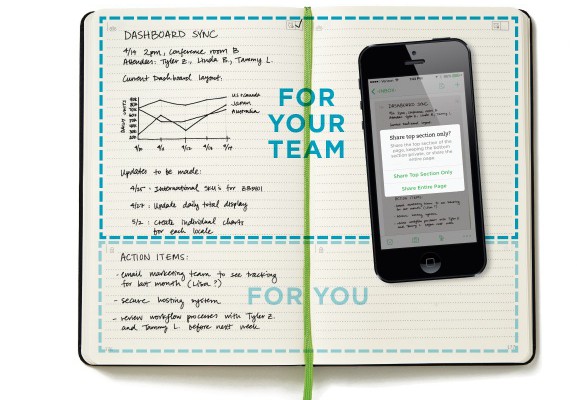 DASHBOARD SYNC
4/19 2pm, conference room B
Attendees: Tyler Z., Linda B., Tammy L.
Current Dashboard layout:
US + Canada
Japan
Australia
DAILY UNITS
Updates to be made:
4/25 - International SKUs for
4/27 : Update daily total display
5/2 : create individual charts
for each locale
FOR
YOUR
TEAM
ACTION ITEMS:
- email marketing team to see tracking
for last month (Lisa?)
- secure hosting system
- review workflow processes with Tyler Z.
and Tammy L. before next week
FOR YOU
DASHBOARD SYNC
Share top section only?
Share the top section of the
page, keeping the bottom
section private, or share the
entire page.
Share Top Section Only
Share Entire Page
ACTION ITEMS: